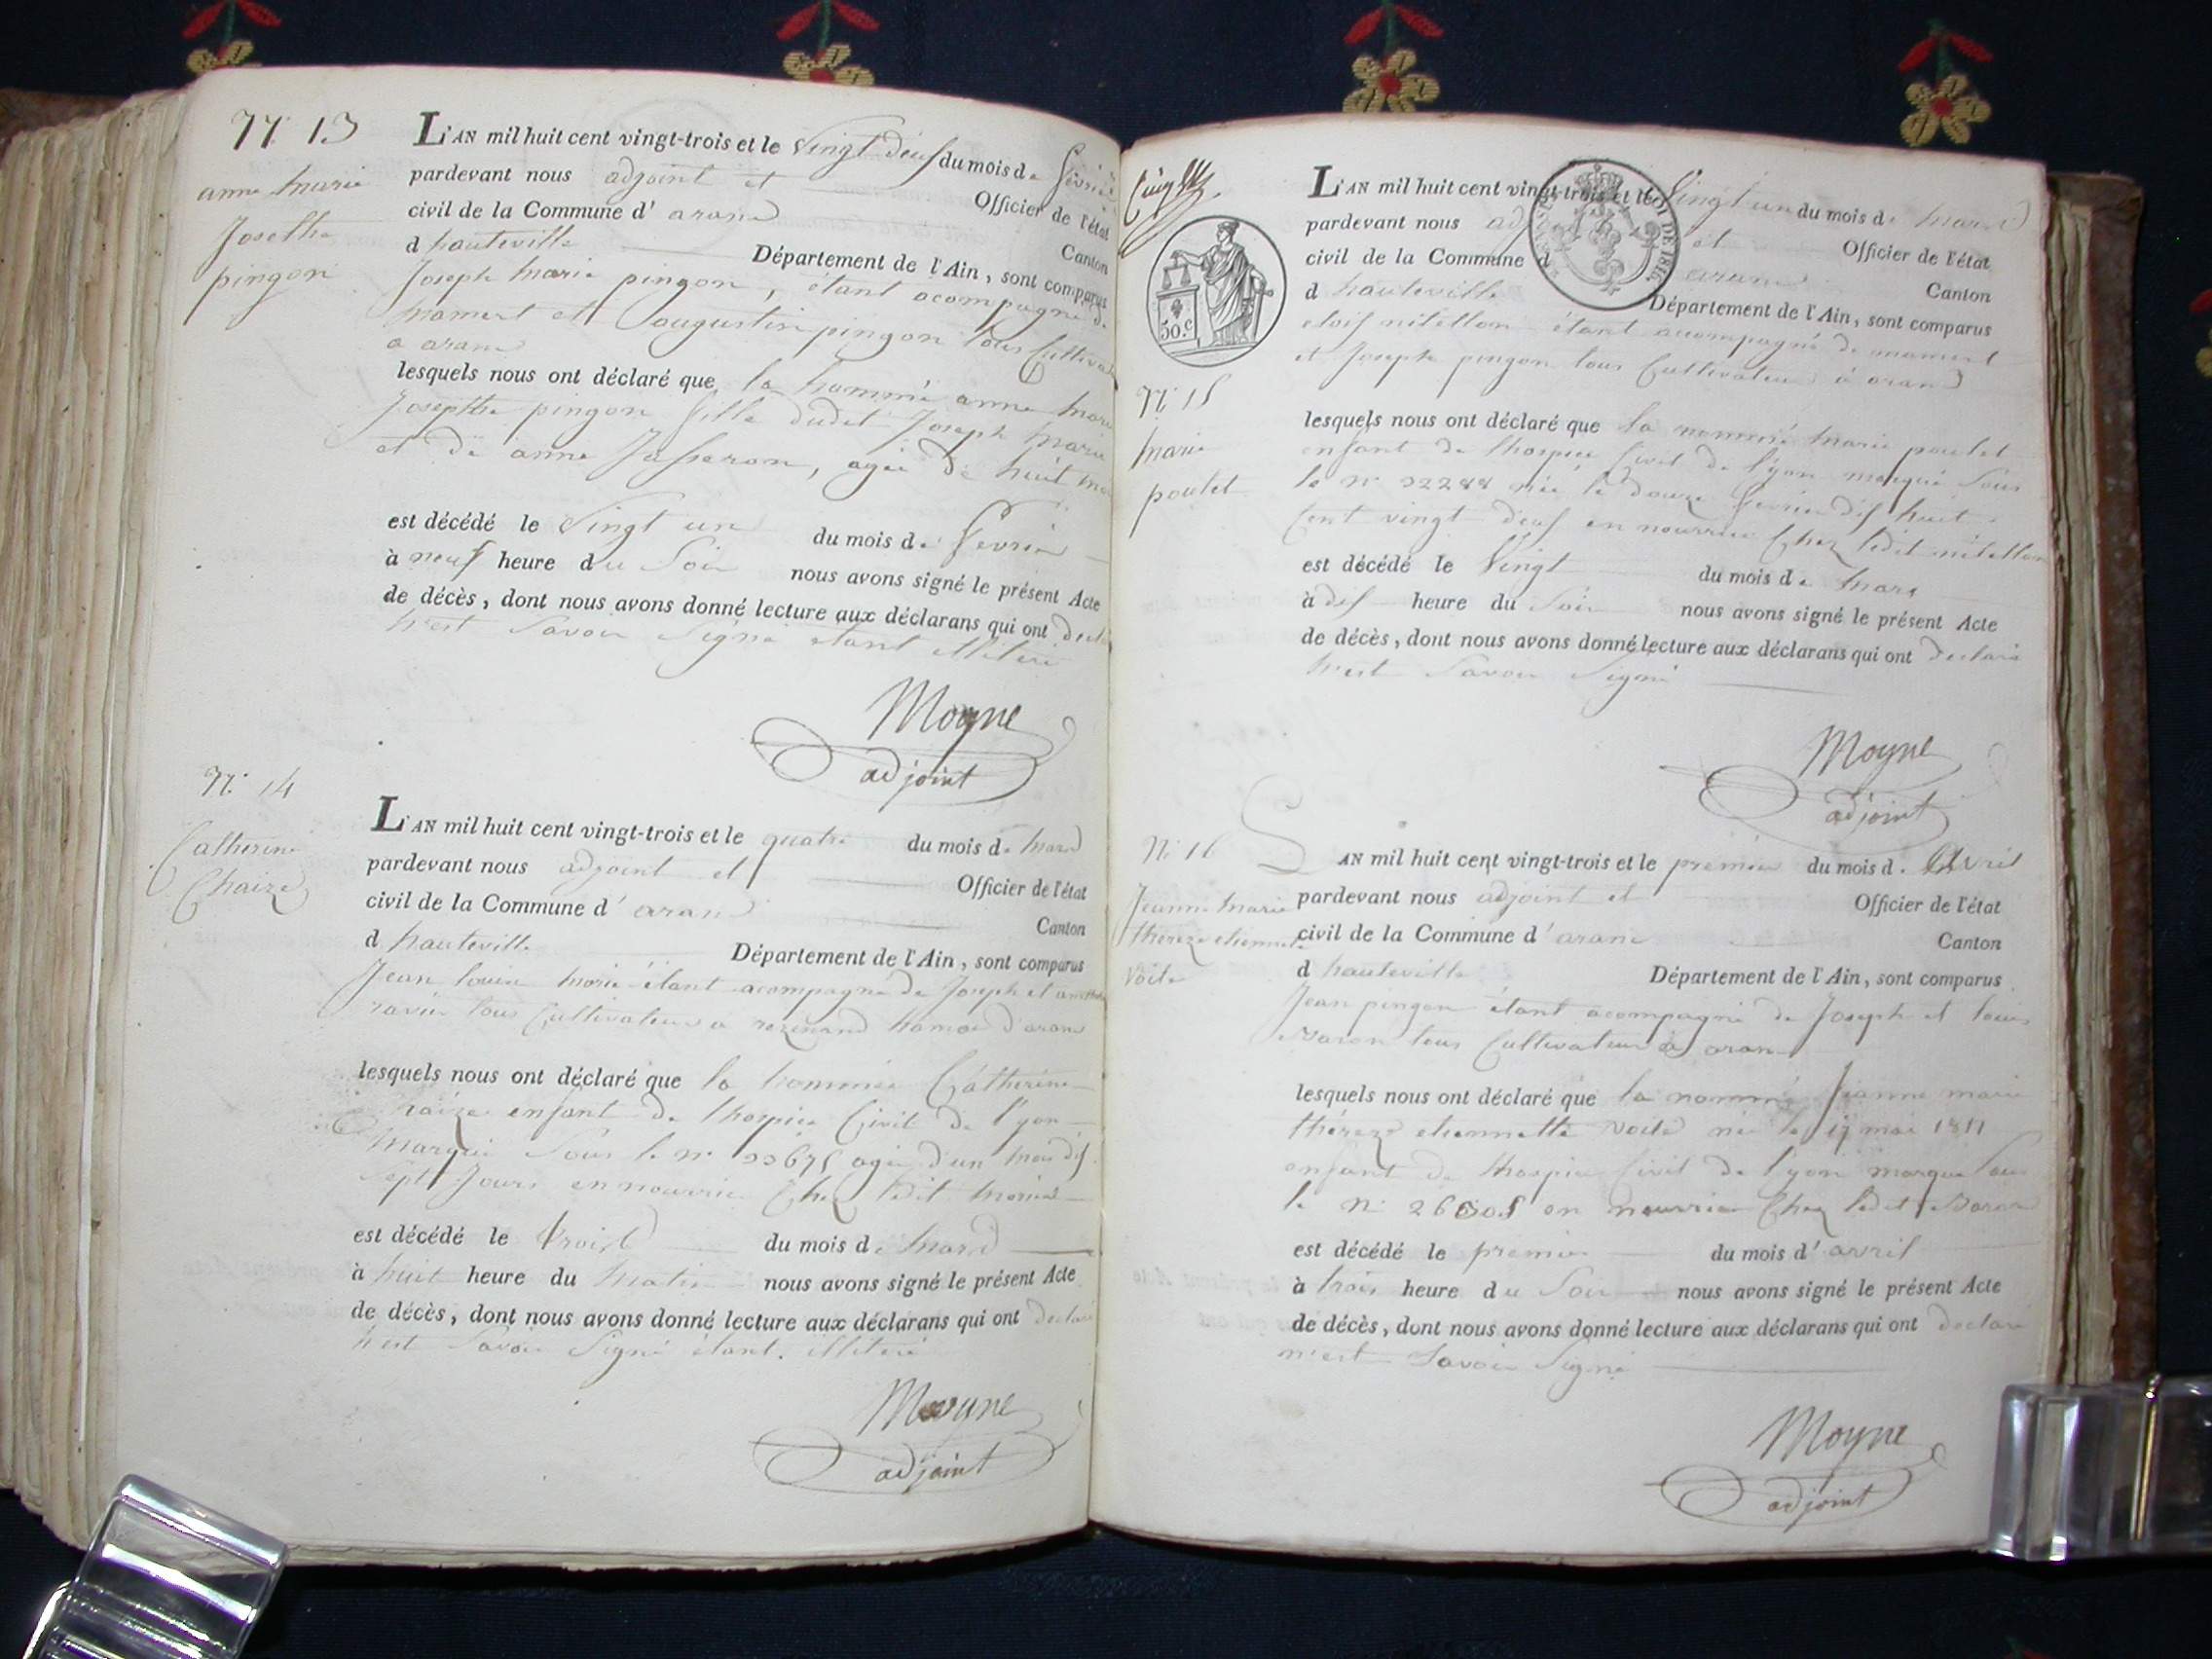 N° 13
anne marie
Josephe
pingon
L'AN mil huit cent vingt-trois et le vingt deuf du mois de fevrier
pardevant nous adjoint et Officier de l'état
civil de la Commune d'aranc Canton
d hauteville Département de l'Ain, sont comparus
Joseph marie pingon, étant acompagné de
mamert et augustin pingon tous Cultivat
a aranc
lesquels nous ont déclaré que la nommé anne marie
Josephe pingon fille dudit Joseph marie
et de anne Jasseron, agée de huit
est décédé le vingt un du mois de fevrier
à neuf heure du Soir nous avons signé le présent Acte
de décès, dont nous avons donné lecture aux déclarans qui ont
n'est Savoir Signé étant illiteré
Moyne
adjoint
N° 14
Catherine
Chaize
L'AN mil huit cent vingt-trois et le quatre du mois de mars
pardevant nous adjoint et Officier de l'état
civil de la Commune d'aranc Canton
d hauteville Département de l'Ain, sont comparus
Jean louis étant acompagné de Joseph et
ravier tous Cultivateurs a d'aranc
lesquels nous ont déclaré que la nommée Catherine
Chaize enfant de lhospice Civil de lyon
marqué Sous le n° agée d'un mois dis
sept Jours en nourrice Chez ledit
est décédé le trois du mois de mars
à huit heure du matin nous avons signé le présent Acte
de décès, dont nous avons donné lecture aux déclarans qui ont declaré
n'est Savoir Signé étant illiteré
Moyne
adjoint
50 c.
N° 15
marie
poulet
L'AN mil huit cent vingt-trois et le vingt un du mois de mars
pardevant nous et Officier de l'état
civil de la Commune d aranc Canton
d hauteville Département de l'Ain, sont comparus
nitellon étant accompagné de mamert
et Joseph pingon tous Cultivateurs à aranc
lesquels nous ont déclaré que la nommé marie poulet
enfant de lhospice Civil de lyon marqué Sous
le n° née le douze fevrier dis huit
Cent vingt deuf en nourrice Chez ledit nitellon
est décédé le vingt du mois de mars
à dis heure du Soir nous avons signé le présent Acte
de décès, dont nous avons donné lecture aux déclarans qui ont declaré
n'est Savoir Signé
Moyne
adjoint
N° 16
Jeanne marie
thereze etiennette
Voile
L'AN mil huit cent vingt-trois et le premier du mois d'Avril
pardevant nous adjoint et Officier de l'état
civil de la Commune d'aranc Canton
d hauteville Département de l'Ain, sont comparus
Jean pingon étant acompagné de Joseph et louis
tous Cultivateurs à aranc
lesquels nous ont déclaré que la nommé Jeanne marie
théreze etiennette Voile née le 17 mai 1811
enfant de lhospice Civil de lyon marqué Sous
le n° en nourrice Chez ledit
est décédé le premier du mois d'avril
à trois heure du Soir nous avons signé le présent Acte
de décès, dont nous avons donné lecture aux déclarans qui ont declaré
n'est Savoir Signé
Moyne
adjoint